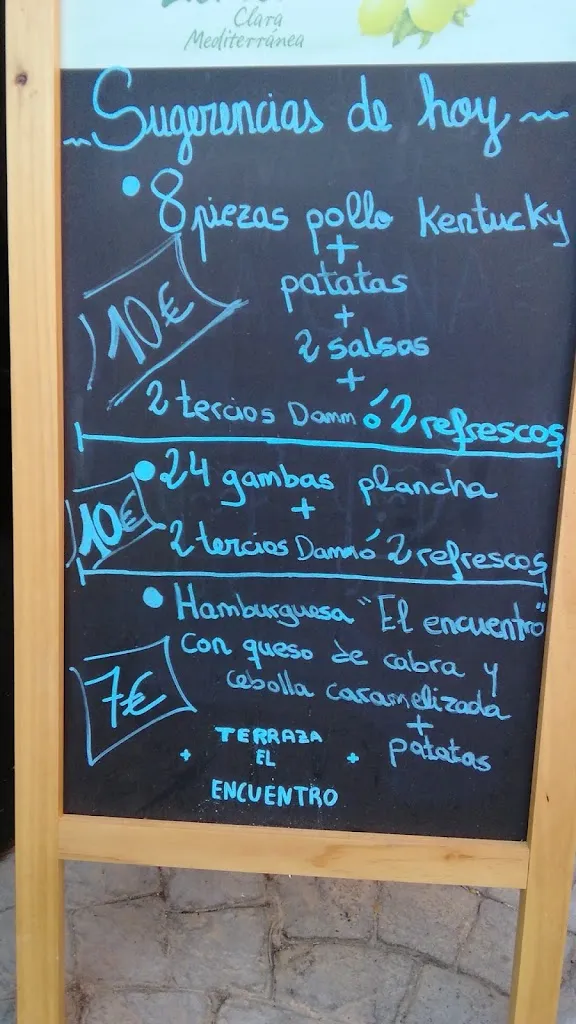 Clara
Mediterránea
~ Sugerencias de hoy ~
• 8 piezas pollo Kentucky
+
patatas
10€
+
2 salsas
+
2 tercios Damm ó 2 refrescos
• 24 gambas plancha
+
10€
2 tercios Damm ó 2 refrescos
• Hamburguesa "El encuentro"
con queso de cabra y
cebolla caramelizada
7€
+
patatas
TERRAZA
+ EL +
ENCUENTRO